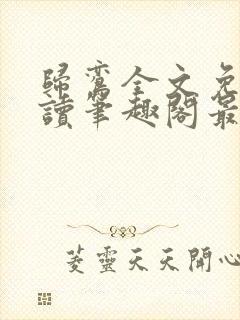 歸鸞全文免
讀筆趣閣最
菱靈天天開心